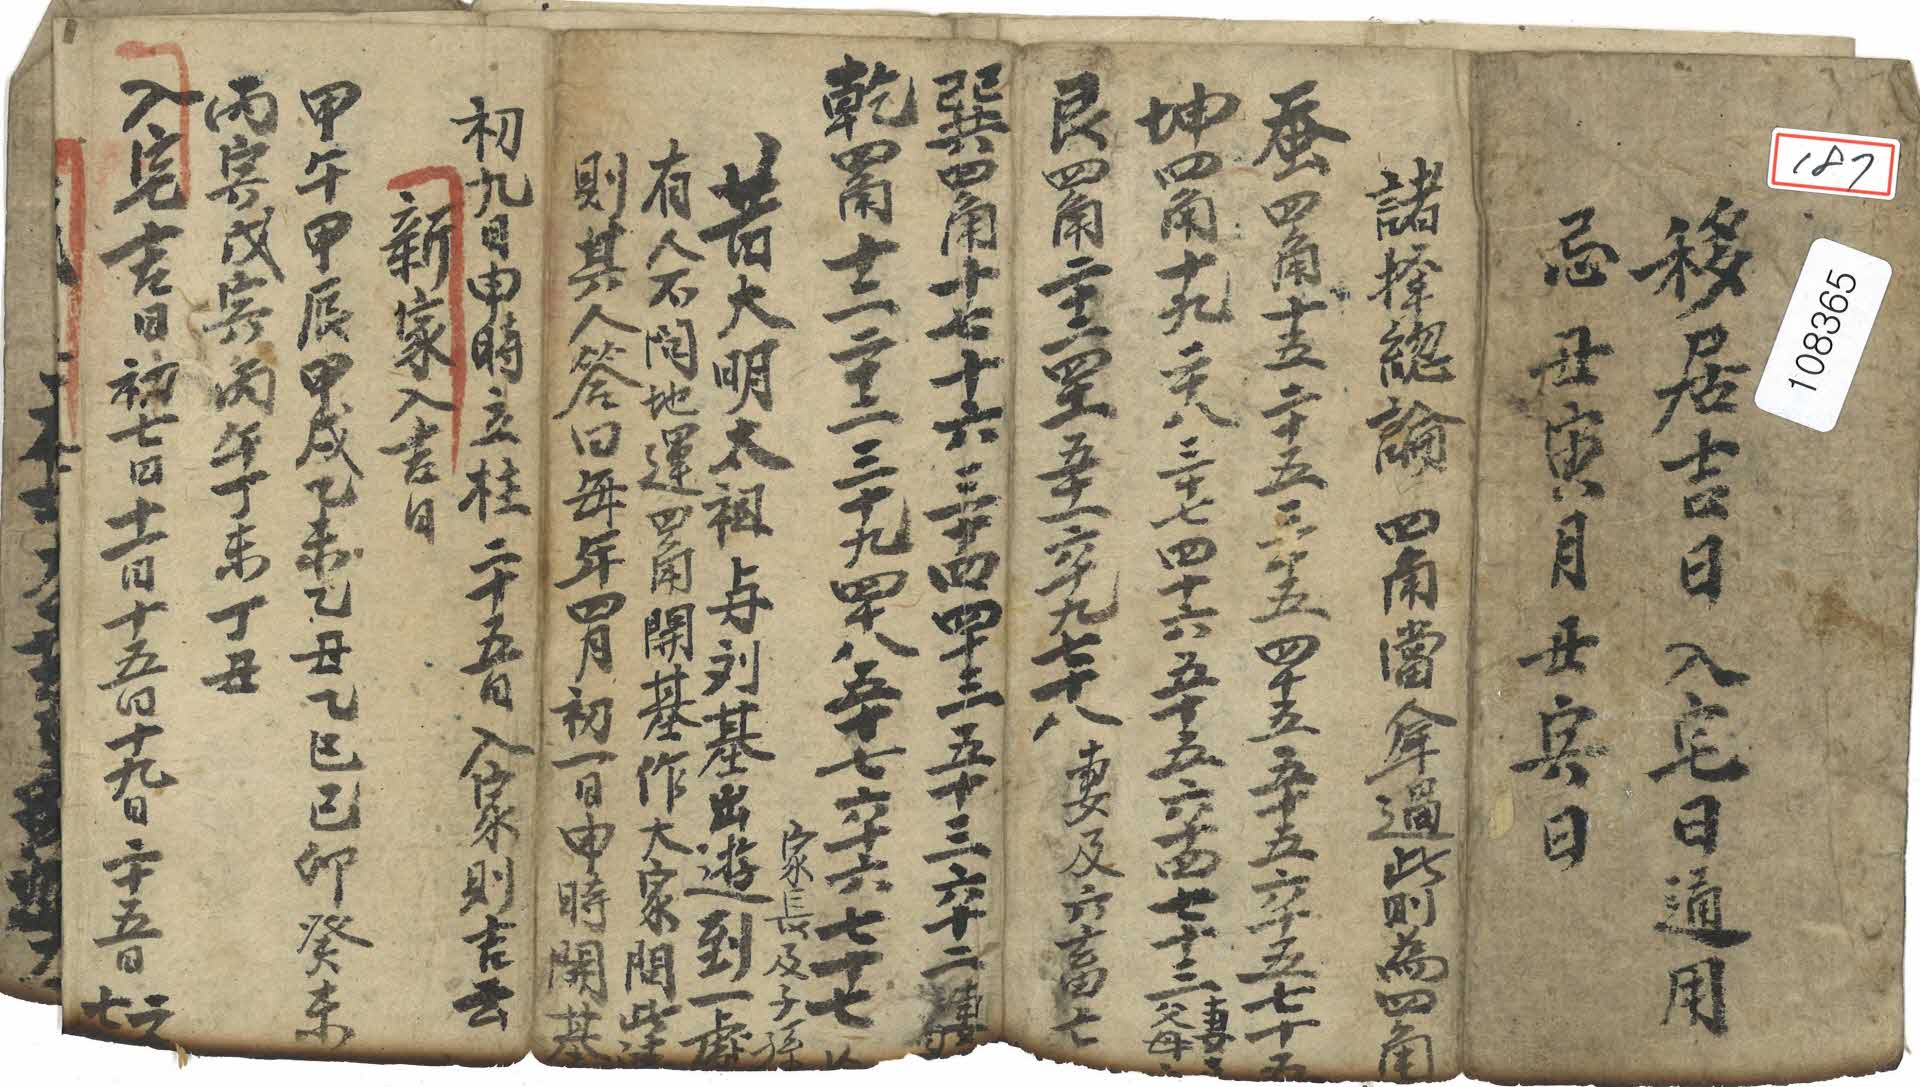 187
108365
移居吉日入宅日通用
忌丑寅月丑寅日
諸擇總論 四角當年過此則為四角
蚕四角十五二十五三十五四十五五十五六十五七十五
坤四角十九二十八三十七四十六五十五六十四七十三 妻 父母
艮四角二十二四十五十一六十九七十八 妻及六畜七
巽四角十七十六三十四四十三五十三六十二 妻
乾四角十二二十二三十九四十八五十七六十六七十七 家長及子孫
昔大明太祖与刘基出遊到一處
有人不問地運四角開基作大家問
則其人答曰每年四月初一日申時開基
初九日申時立柱二十五日入家則吉云
新家入吉日
甲午甲辰甲戌乙未乙丑乙巳己卯癸未
丙寅戊寅丙午丁未丁丑
入宅吉日初七日十一日十五日十九日二十五日